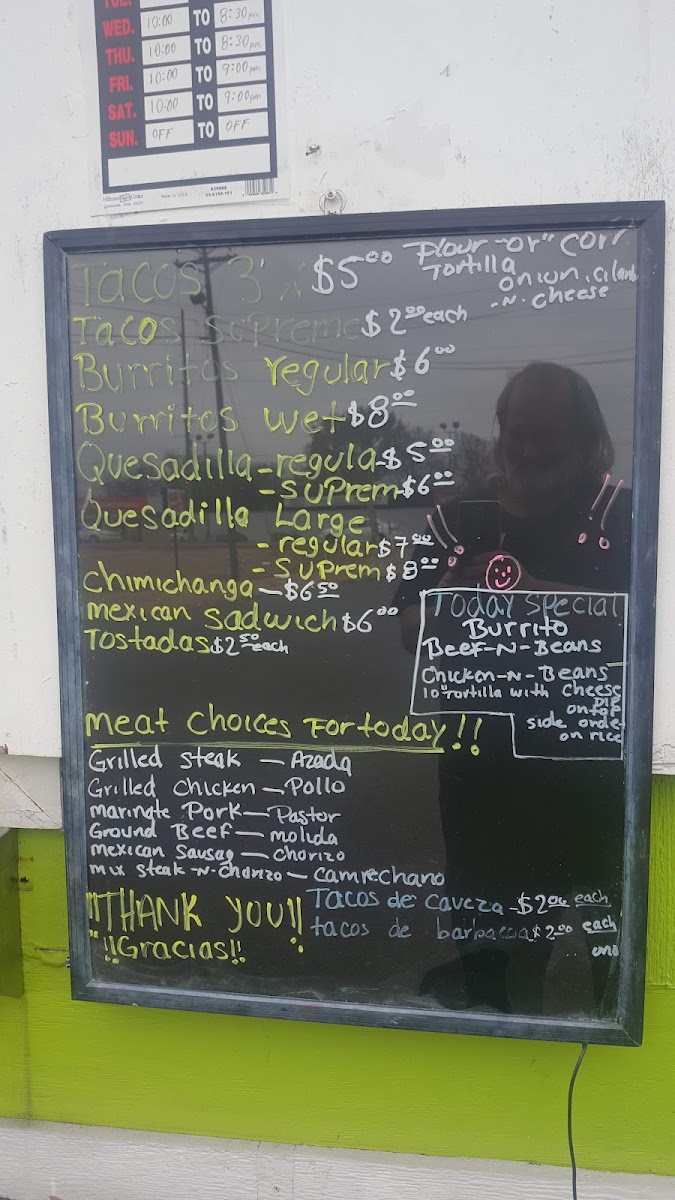 WED. 10:00 TO 8:30pm
THU. 10:00 TO 8:30pm
FRI. 10:00 TO 9:00pm
SAT. 10:00 TO 9:00pm
SUN. OFF TO OFF
Tacos 3 x $5.00 Flour "or" Corn
Tortilla
onion, cilan
-N- cheese
Tacos Supreme $2.00 each
Burritos regular $6.00
Burritos wet $8.00
Quesadilla - regula $5.00
- suprem $6.00
Quesadilla Large
- regular $7.00
- suprem $8.00
chimichanga - $6.50
mexican sadwich $6.00
Tostadas $2.50 each
!! !!
Today special
Burrito
Beef-N-Beans
Chicken-N-Beans
10" Tortilla with cheese
Dip
on top
side order
on rice
meat choices For today!!
Grilled steak — Azada
Grilled chicken — Pollo
marinate Pork — Pastor
Ground Beef — molida
mexican sausag — chorizo
mix steak -N- chorizo — campechano
!!THANK YOU!!
!!Gracias!!
Tacos de caveza - $2.00 each
tacos de barbacoa $2.00 each